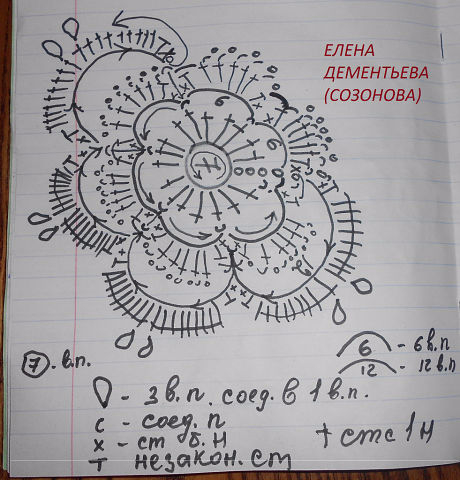 ЕЛЕНА
ДЕМЕНТЬЕВА
(СОЗОНОВА)
6
6
6
7 - в.п.
6 - 6 в.п
12 - 12 в.п
- 3 в.п. соед. в 1 в.п.
с - соед. п
х - ст б. н
т незакон. ст
† стс 1 н